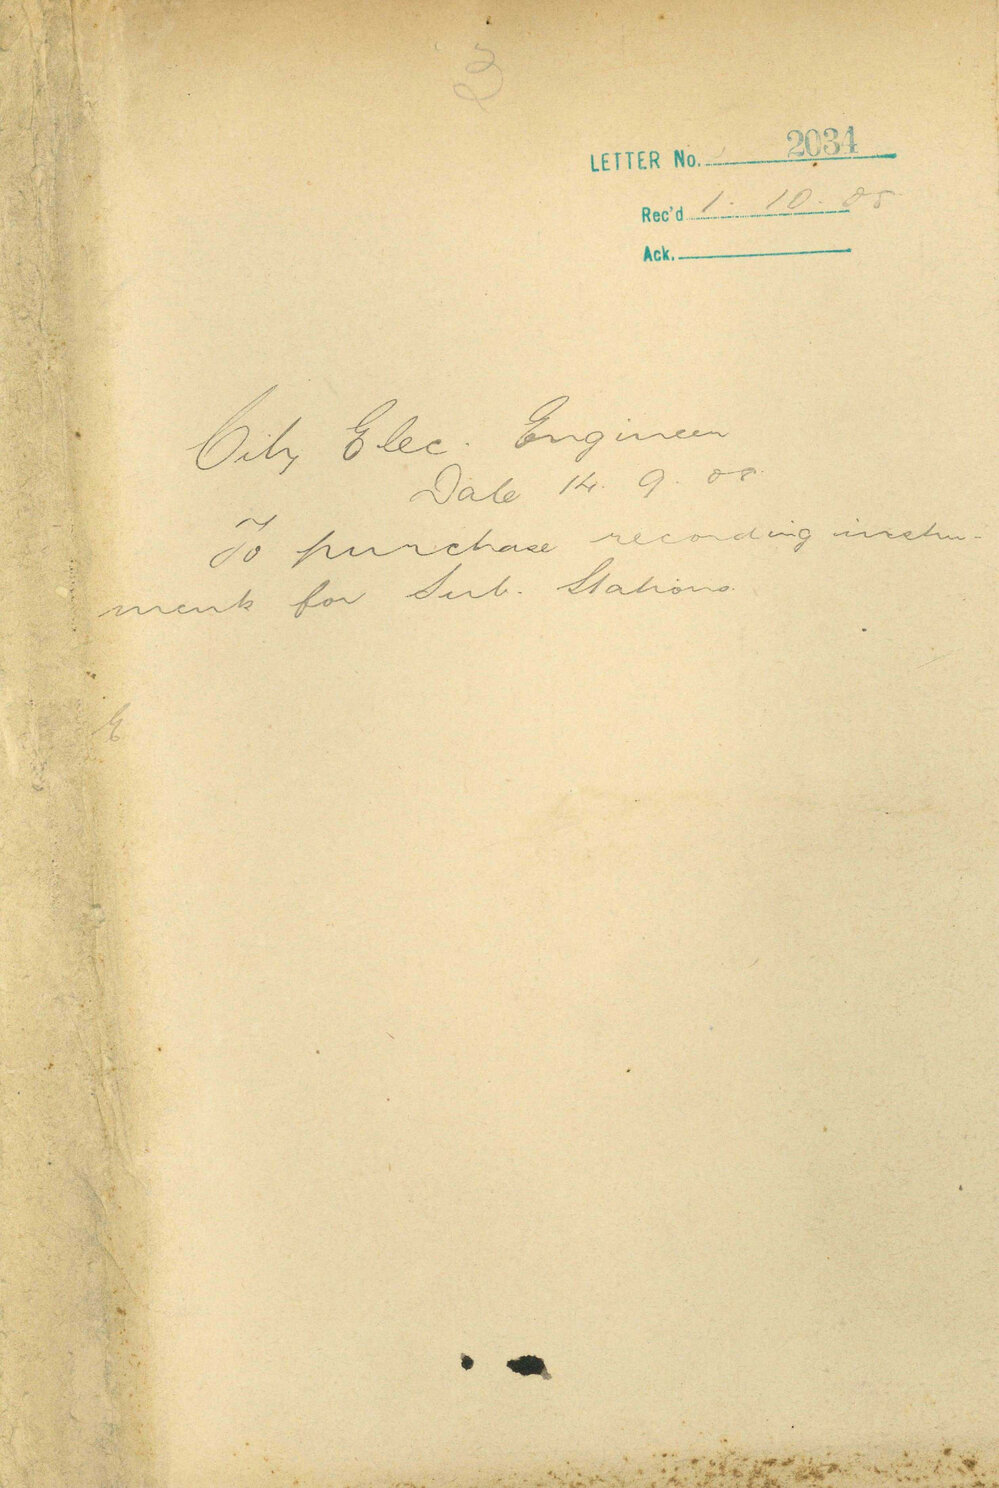 LETTER No. 2034
Rec'd 1. 10. 08
Ack.
City Elec. Engineer
Date 14. 9. 08.
To purchase recording instru-
ments for Sub. Stations.